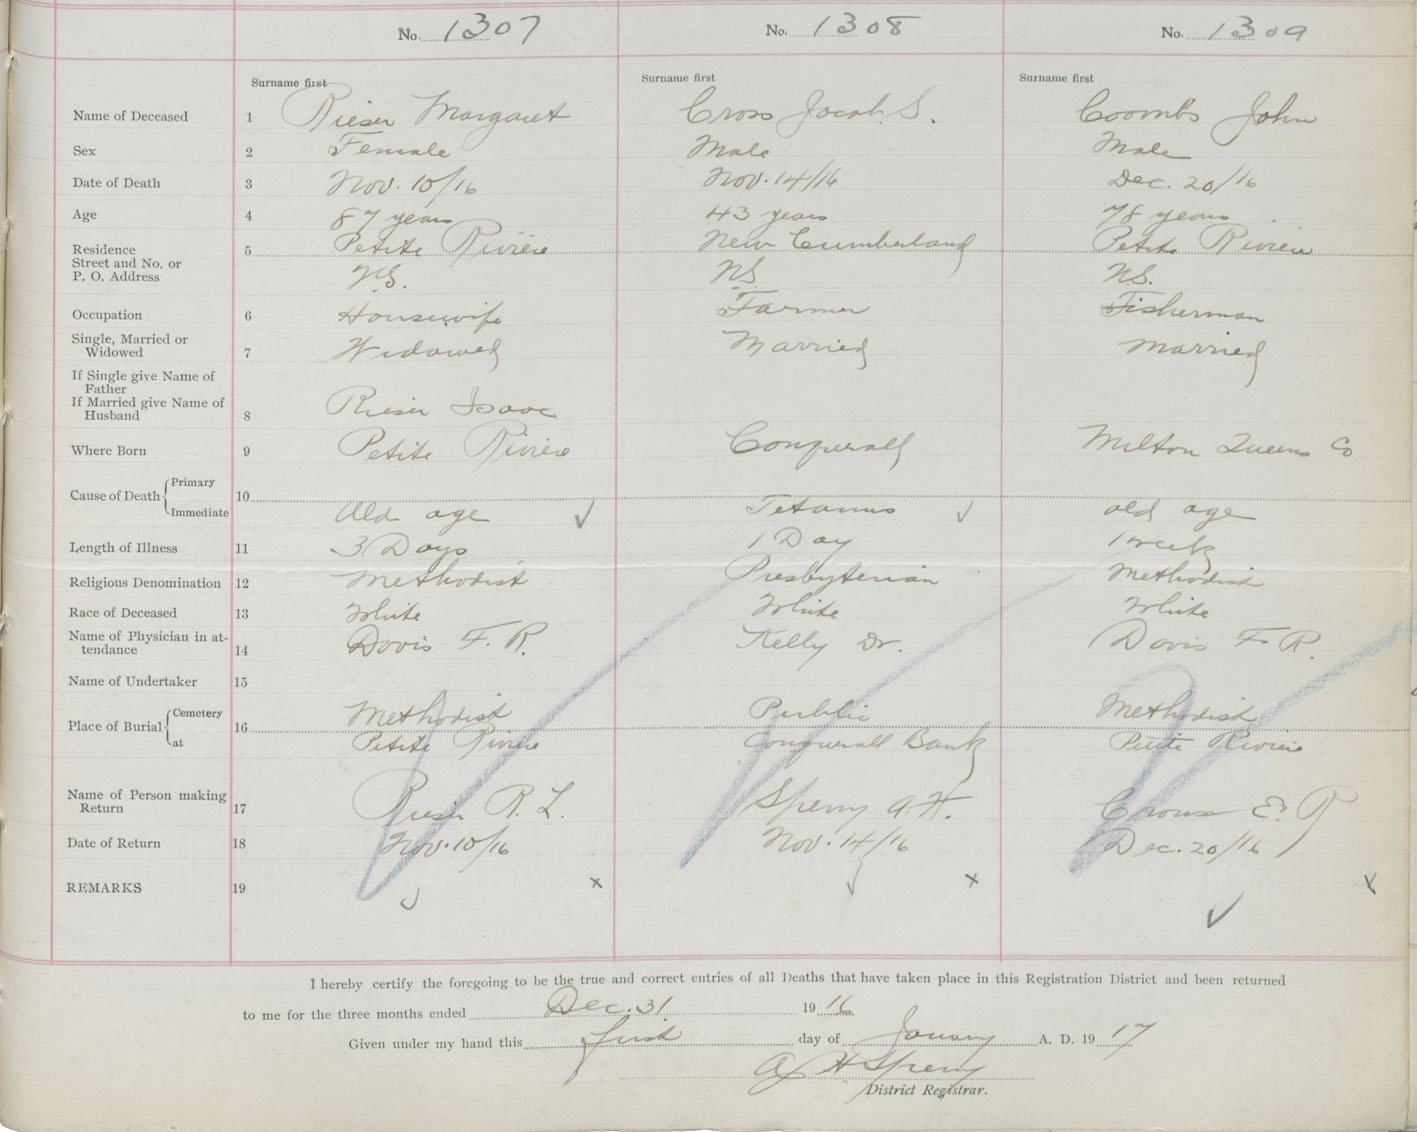 No. 1307 No. 1308 No. 1309
Surname first Surname first Surname first
Name of Deceased 1 Rieser Margaret Cross Jacob S. Coombs John
Sex 2 Female Male Male
Date of Death 3 Nov. 10/16 Nov. 14/16 Dec. 20/16
Age 4 87 years 43 years 78 years
Residence 5 Petite Riviere New Cumberland Petite Riviere
Street and No. or
P. O. Address N.S. N.S. N.S.
Occupation 6 Housewife Farmer Fisherman
Single, Married or
Widowed 7 Widowed Married Married
If Single give Name of
Father
If Married give Name of
Husband 8 Rieser Isaac
Where Born 9 Petite Riviere Conquerall Milton Queens Co
Cause of Death Primary 10
Immediate Old age Tetanus old age
Length of Illness 11 3 Days 1 Day 1 week
Religious Denomination 12 Methodist Presbyterian Methodist
Race of Deceased 13 White White White
Name of Physician in at-
tendance 14 Davis F. R. Kelly Dr. Davis F. R.
Name of Undertaker 15
Place of Burial Cemetery 16 Methodist Public Methodist
at Petite Riviere Conquerall Bank Petite Riviere
Name of Person making
Return 17 Rieser R. L. Sperry A. H. E. R
Date of Return 18 Nov. 10/16 Nov. 14/16 Dec. 20/16
REMARKS 19 x x x
I hereby certify the foregoing to be the true and correct entries of all Deaths that have taken place in this Registration District and been returned
to me for the three months ended Dec. 31 1916
Given under my hand this first day of January A. D. 1917
A H Sperry
District Registrar.